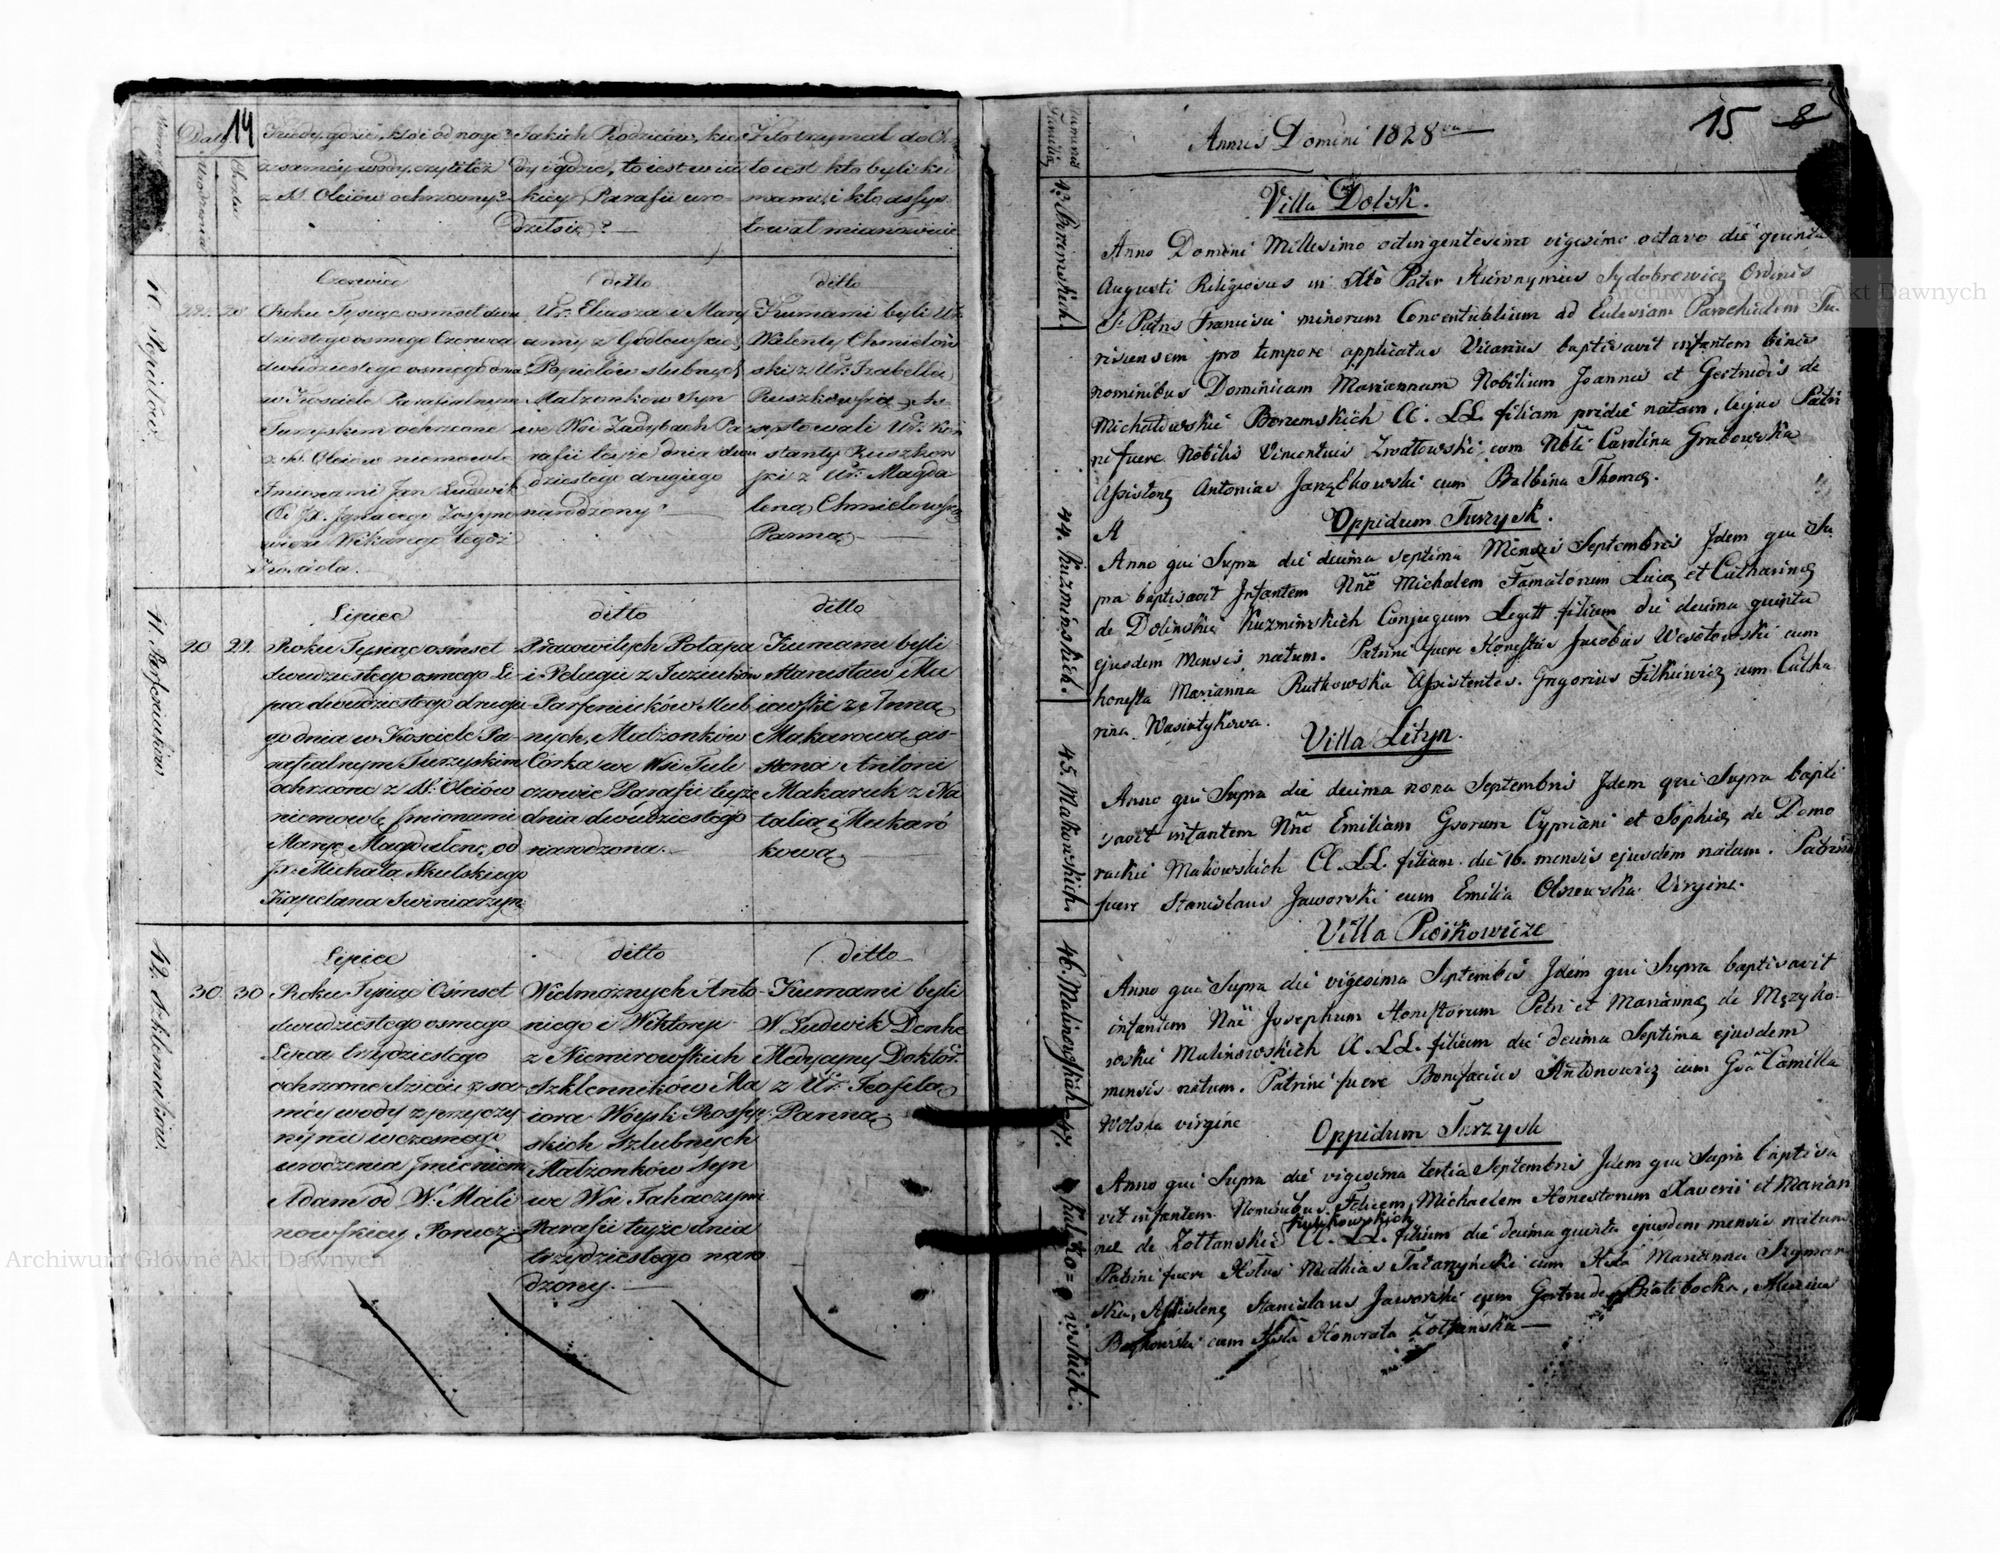 14
Daty
Kiedy, gdzie, kto i od kogo?
z samej wody, czyli też
z SS. Olejów ochrzczony?
Jakich Rodziców, kie
dy i gdzie, to iest w ia
kiey Parafii uro
dził się?
Kto trzymał do Ch.
to iest kto byli ku
mami, i kto assys
tował mianowicie
Urodzenia
Chrztu
40. Popielów.
22. 28.
Czerwiec
Roku Tysiąc osmset dwu
dziestego osmego Czerwca
dwudziestego osmego dnia
w Kosciele Parafialnym
Turzyskim ochrzczone
z SS. Oleiów niemowle
Imionami Jan Ludwik
Od JX. Ignacego
Wikarego tegoż
Kościoła.
ditto
Ur. Eliasza i Mary
anny z Godlewskich
Popielów slubnych
Małzonkow Syn
we Wsi Zadybach Pa
rafii teyże dnia dwu
dziestego drugiego
narodzony.
ditto
Kumami byli Ur.
Walenty Chmielow
ski z Ur. Izabellą
Ruszkowską, As
systowali Ur. Kon
stanty Ruszkow
ski z Ur. Magda
leną Chmielowską
Panną
41. Parfeniuków.
20. 22.
Lipiec
Roku Tysiąc osmset
dwudziestego osmego Li
pca dwudziestego drugie
go dnia w Kosciele Pa-
rafialnym Turzyskim
ochrzcone z SS. Oleiów
niemowle Imionami
Marya Magdalena, od
JX. Michała Skulskiego
Kapelana Swiniarzyn.
ditto
Pracowitych Potapa
i Pelagii z
Parfeniuków slub
nych, Małzonków
Córka we Wsi Tuli
czowie Parafii teyże
dnia dwudziestego
narodzona.
ditto
Kumami byli
Stanisław Ma
iewski z Anną
Makarową as-
stenci Antoni
Makaruk z Na
talią Makaro
wą
42. Szklenników.
30. 30
Lipiec
Roku Tysiąc Osmset
dwudziestego osmego
Lipca trzydziestego
ochrzcone dziecie z sa
mey wody z przyczy
ny nie wczesnego
urodzenia Imieniem
Adam od W. Mali
nowskiey Porucz.
ditto
Wielmożnych Anto-
niego i Wiktoryi
z Niemirowskich
Szklenników Ma
iora Woysk Rossyy
skich Szlubnych
Małzonków Syn
we Wsi Tahaczynie
Parafii teyże dnia
trzydziestego naro
dzony.
ditto
Kumami byli
W Ludwik Denke
Medycyny Doktor
z Ur. Teofilą
Panną
15 8
Annus Domini 1828
Villa Dolsk.
43. Boremskich.
Anno Domini Millesimo octingentesimo vigesimo octavo die quinta
Augusti Religiosus in Xto Pater Hieronymus Ordinis
S. Patris Francisci minorum Conventualium ad Eclesiam Parochialem Tu
riscensem pro tempore applicatus Vicarius baptisavit infantem binis
nominibus Dominicam Mariannam Nobilium Joannis et Gertrudis de
Michałowskie Boremskich C. LL. filiam pridie natam, cujus Patri
ni fuere Nobilis Vincentius cum Nbli Carolina Grabowska
Assistens Antonius cum Balbina Thomas.
Oppidum Turzysk.
A
44. Kuzminskich.
Anno qui Supra die decima septima Mensis Septembris Idem qui Su
pra baptisavit Infantem Nne Michalem Famatorum Lucæ et Catharinæ
de Dolinskie Kuzminskich Conjugum Legitt. filium die decima quinta
ejusdem mensis natum. Patrini fuere Honestus Jacobus Wesołowski cum
honesta Marianna Rutkowska Assistentes. Gregorius Filkiewicz cum Catha
rina Wasiatykowa.
Villa Lityn.
45. Makowskich.
Anno qui Supra die decima nona Septembris Idem qui Supra bapti
savit infantem Nne Emiliam Gsorum Cypriani et Sophiæ de Domo
rackie Makowskich C. LL. filiam die 16. mensis ejusdem natam. Patrini
fuere Stanislaus Jaworski cum Emilia Olszewska Virgine.
Villa Piórkowicze
46. Malinowskich
Anno qui Supra die vigesima Septembris Idem qui Supra baptisavit
infantem Nne Josephum Honestorum Petri et Mariannæ de
Malinowskich C. LL. filium die decima Septima ejusdem
mensis natum. Patrini fuere Bonifacius Antonowicz cum Gsa Camilla
Wolska virgine
Oppidum Turzysk
47.
Anno qui Supra die vigesima tertia Septembris Idem qui Supra baptisa
vit infantem Nominibus Felicem, Michaelem Honestorum Xaverii et Marian
næ de Zołtanskie C. LL. filium die decima quinta ejusdem mensis natum
Patrini fuere Hstus Mathias cum Hsta Marianna Szyman
ska, Assistens Stanislaus Jaworski cum Gertrude
cum Hsta Honorata Zołtanska
Archiwum Główne Akt Dawnych
Archiwum Główne Akt Dawnych